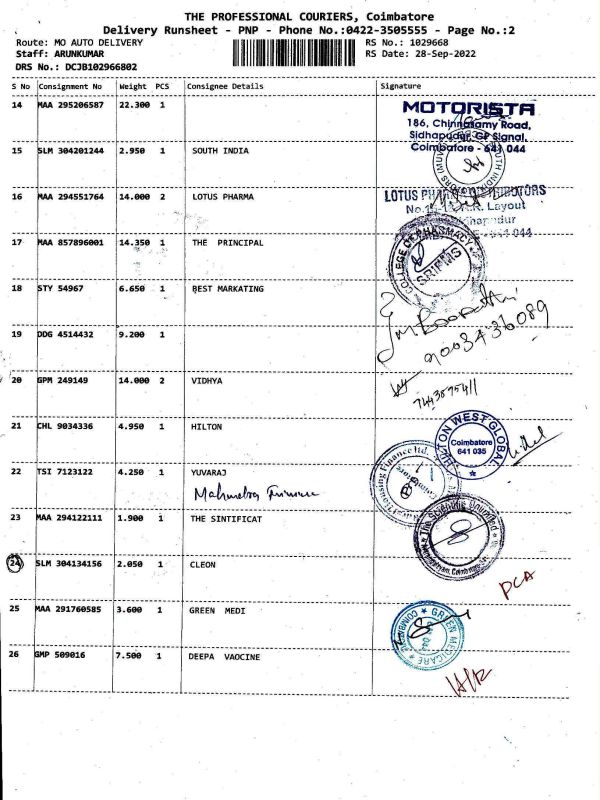 THE PROFESSIONAL COURIERS, Coimbatore
Delivery Runsheet - PNP - Phone No.:0422-3505555 - Page No.:2
Route: MO AUTO DELIVERY RS No.: 1029668
Staff: ARUNKUMAR RS Date: 28-Sep-2022
DRS No.: DCJB102966802
S No Consignment No Weight PCS Consignee Details Signature
14 MAA 295206587 22.300 1
MOTORISTA
186, Chinnasamy Road,
Sidhapudur, GP Signal,
Coimbatore - 641 044
15 SLM 304201244 2.950 1 SOUTH INDIA
16 MAA 294551764 14.000 2 LOTUS PHARMA
LOTUS PHARMA DISTRIBUTORS
Layout
17 MAA 857896001 14.350 1 THE PRINCIPAL
COLLEGE OF PHARMACY
SRIPMS
18 STY 54967 6.650 1 BEST MARKATING
19 DDG 4514432 9.200 1
9003436089
20 GPM 249149 14.000 2 VIDHYA
21 CHL 9034336 4.950 1 HILTON
HILTON WEST GLOBAL
Coimbatore
641 035
22 TSI 7123122 4.250 1 YUVARAJ
Mahindra Finance
Housing Finance Ltd.
Coimbatore
23 MAA 294122111 1.900 1 THE SINTIFICAT
The Scientific
24 SLM 304134156 2.050 1 CLEON
PCA
25 MAA 291760585 3.600 1 GREEN MEDI
GREEN MEDICARE
26 GMP 509016 7.500 1 DEEPA VAOCINE